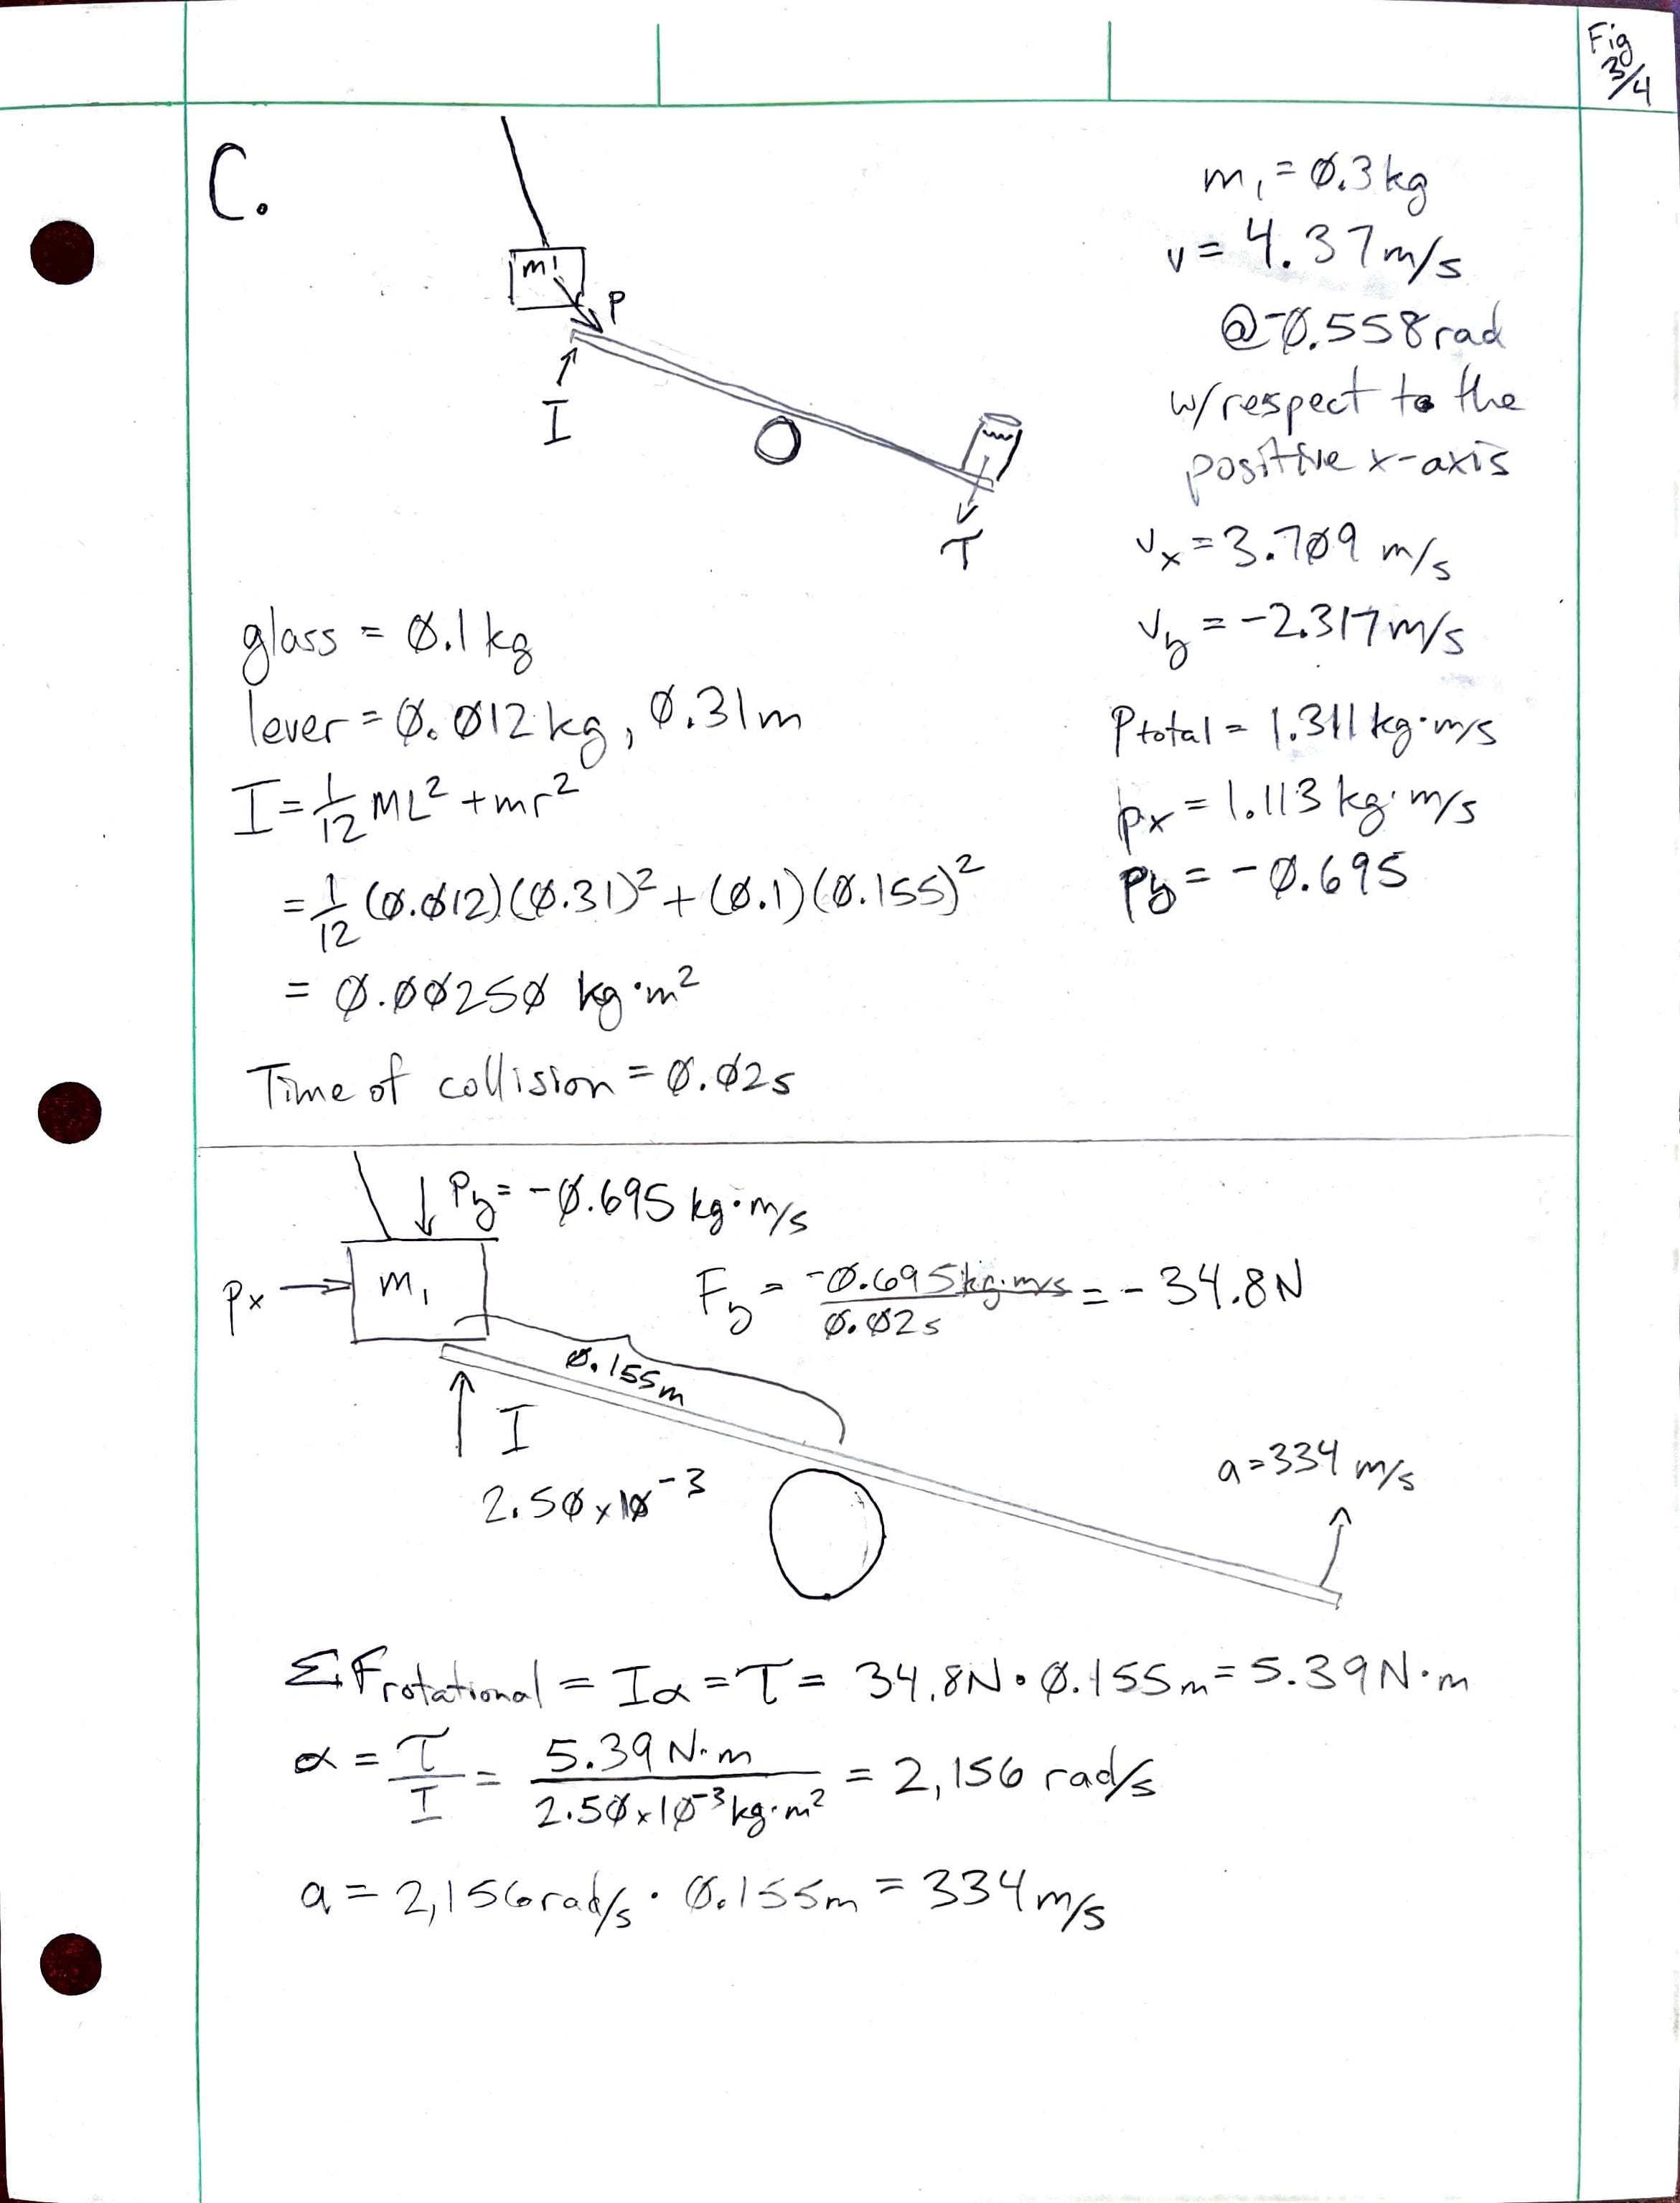 Fig
3/4
C.
m1
P
I
T
m₁ = 0.3kg
v = 4.37m/s
@-0.558rad
w/respect to the
positive x-axis
vx = 3.709 m/s
vy = -2.317m/s
Ptotal = 1.311 kg·m/s
px = 1.113 kg·m/s
Py = -0.695
glass = 0.1kg
lever = 0.012kg, 0.31m
I = 1/12 ML² + mr²
= 1/12 (0.012)(0.31)² + (0.1)(0.155)²
= 0.00250 kg·m²
Time of collision = 0.02s
Py = -0.695 kg·m/s
px
m₁
Fy = -0.695kg·m/s / 0.02s = -34.8N
0.155m
I
2.50x10⁻³
a=334 m/s
ΣFrotational = Iα = τ = 34.8N · 0.155m = 5.39N·m
α = τ/I = 5.39 N·m / 2.50x10⁻³kg·m² = 2,156 rad/s
a = 2,156rad/s · 0.155m = 334m/s